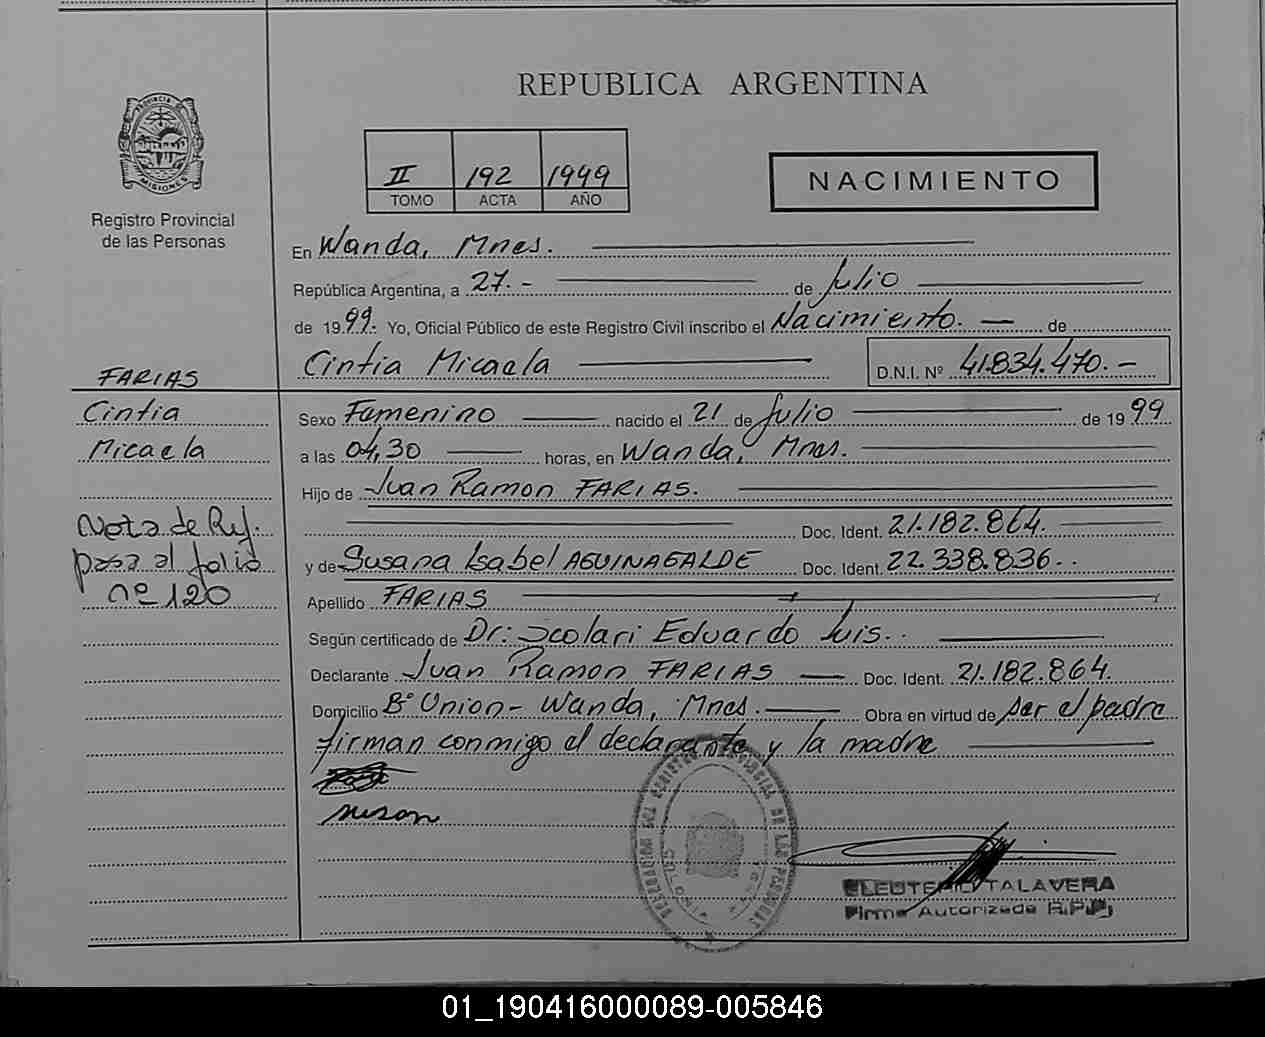 REPUBLICA ARGENTINA
PROVINCIA DE
MISIONES
Registro Provincial
de las Personas
II 192 1999
TOMO ACTA AÑO
NACIMIENTO
En Wanda, Mnes.
República Argentina, a 27.- de Julio
de 1999. Yo, Oficial Público de este Registro Civil inscribo el Nacimiento. — de
Cintia Micaela D.N.I. Nº 41.834.470.-
FARIAS
Cintia
Micaela
Nota de Ref.
pasa al folio
nº 120
Sexo Femenino nacido el 21 de Julio de 1999
a las 04,30 horas, en Wanda, Mnes.
Hijo de Juan Ramon FARIAS.
Doc. Ident. 21.182.864.
y de Susana Isabel AGUINAGALDE Doc. Ident. 22.338.836..
Apellido FARIAS
Según certificado de Dr: Scolari Eduardo Luis..
Declarante Juan Ramon FARIAS — Doc. Ident. 21.182.864.
Domicilio Bº Union - Wanda, Mnes. — Obra en virtud de ser el padre
firman conmigo el declarante y la madre
ELEUTERIO TALAVERA
Firma Autorizada R.P.P.
01_190416000089-005846